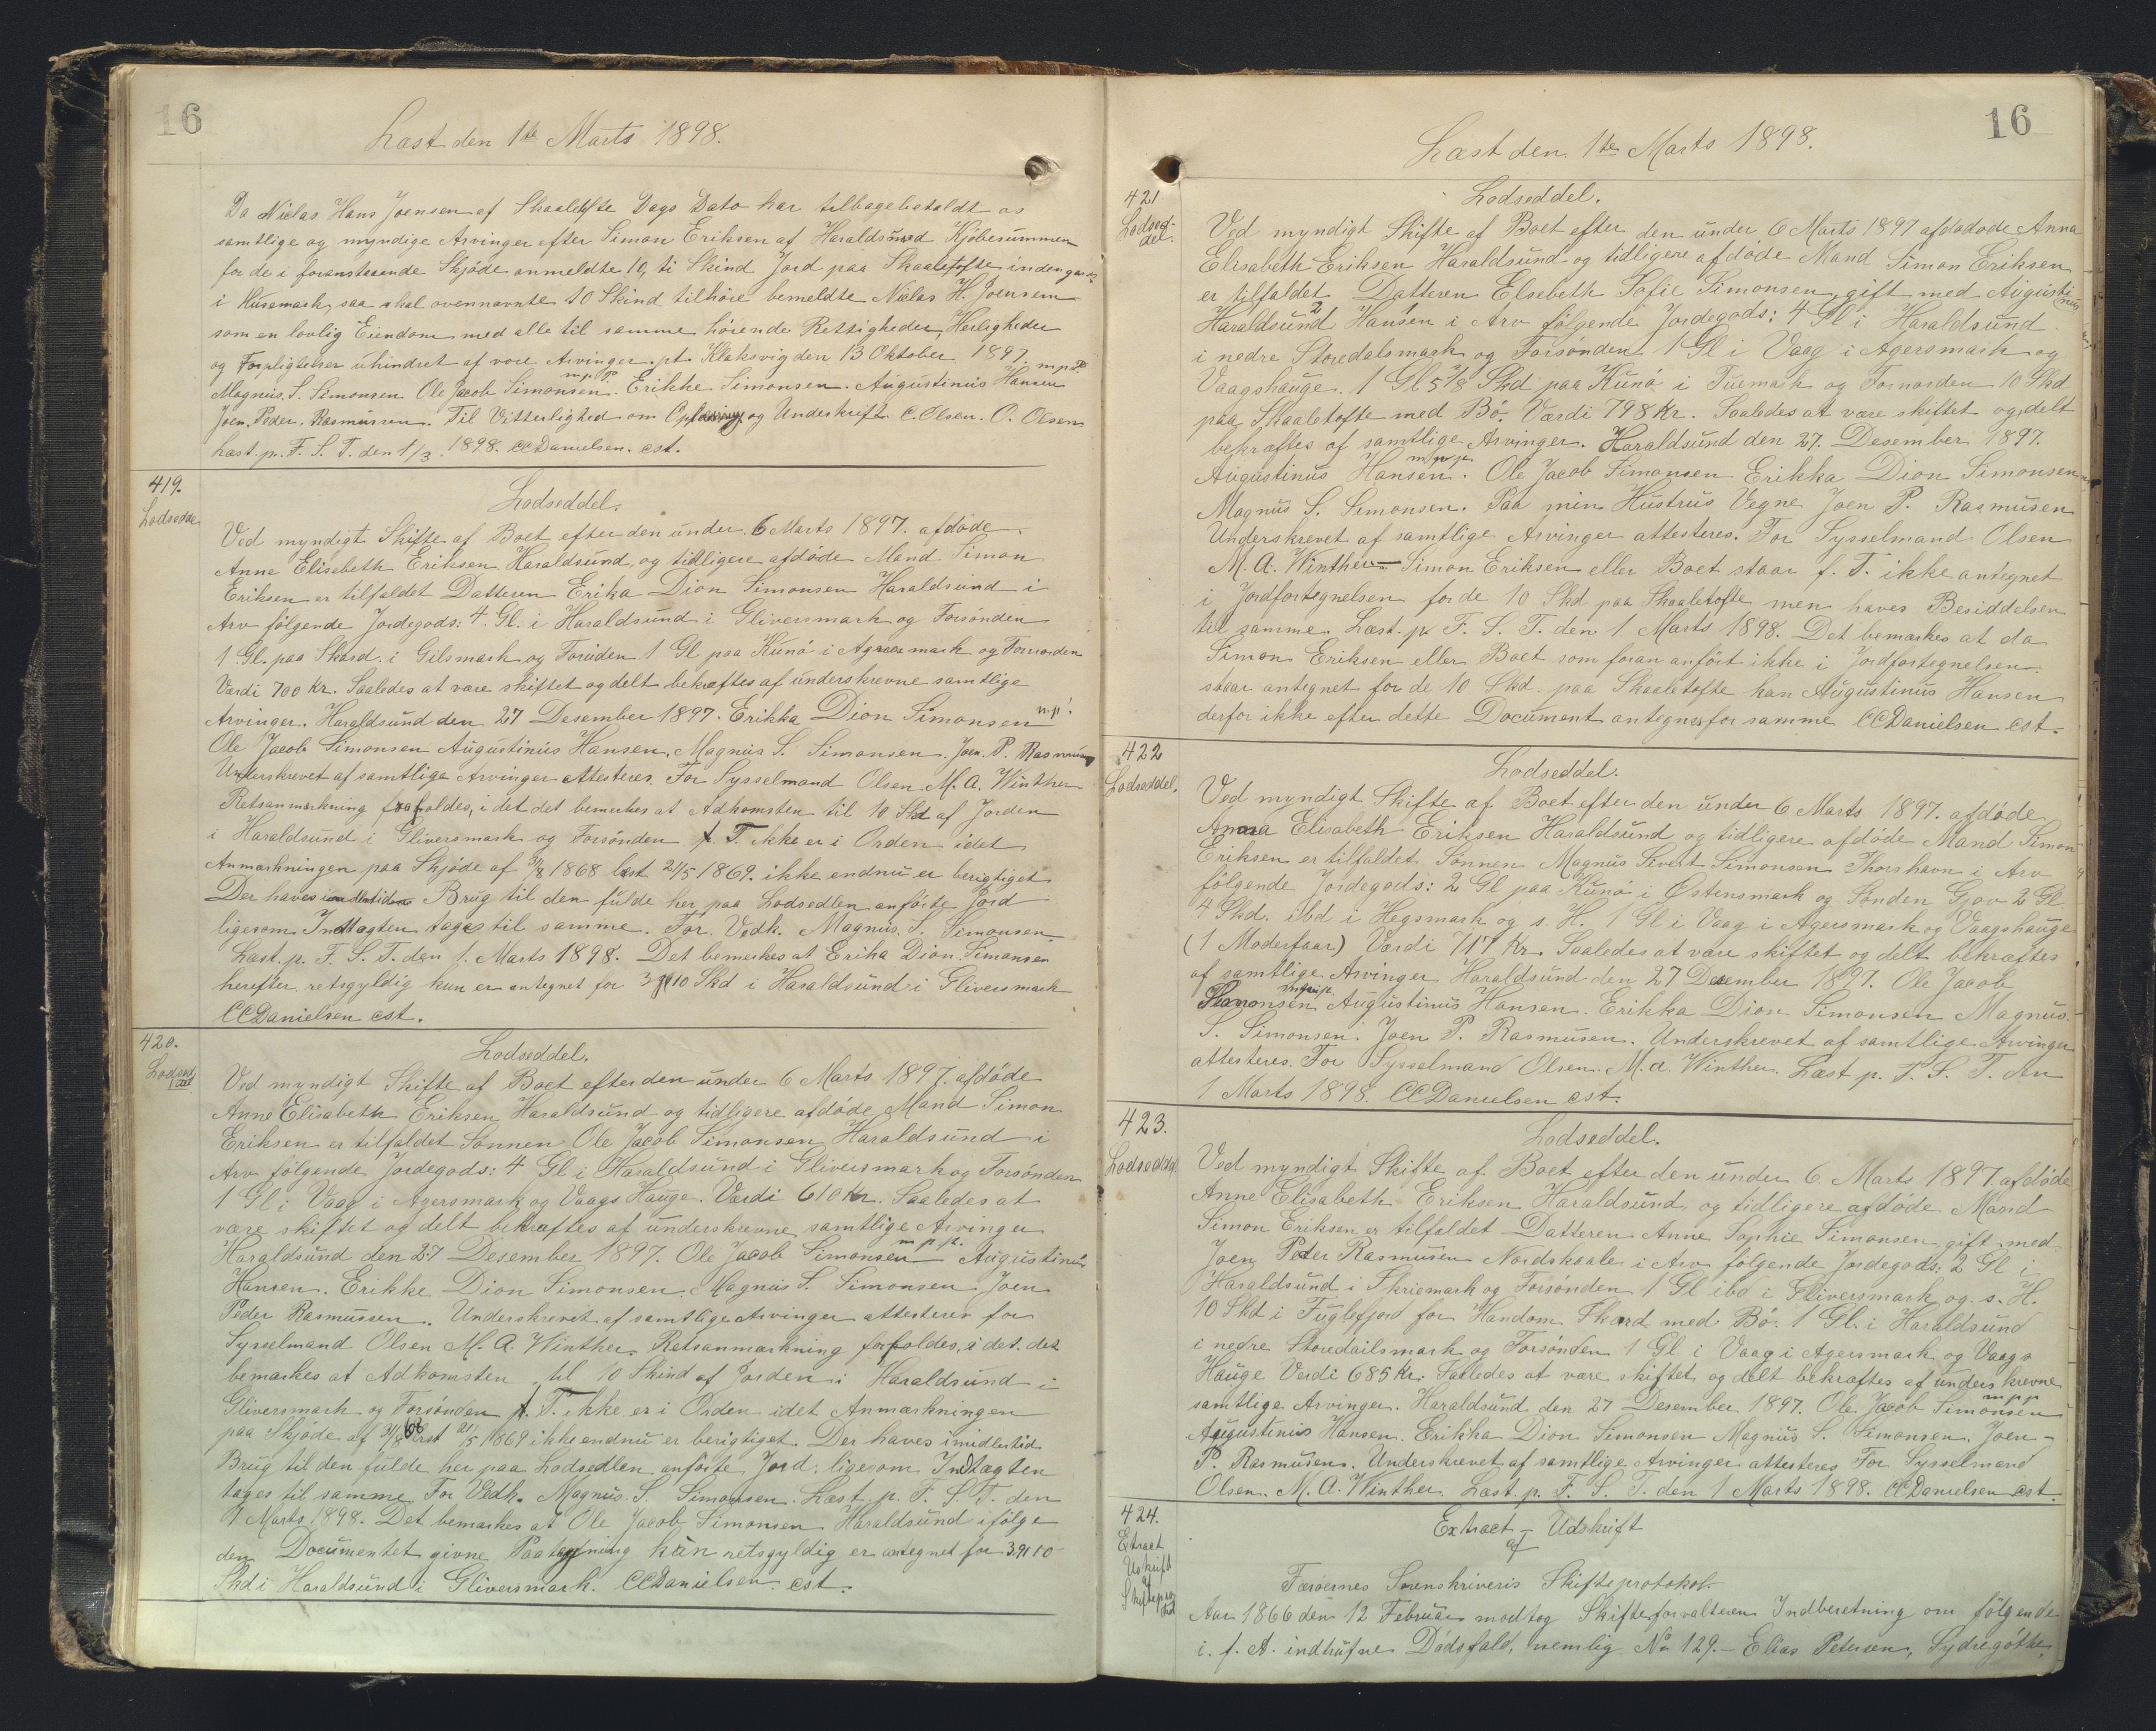 16
Læst den 1te Marts 1898.
Da Niclas Hans Joensen af Skaaletofte Dags Dato har tilbagebetaldt os
samtlige og myndige Arvinger efter Simon Eriksen af Haraldsund Kjöbesummen
for de i foranstaaende Skjöde anmeldte 10, ti Skind Jord paa Skaaletofte indengards
i Husemark, saa skal ovennævnte 10 Skind tilhöre bemeldte Niclas H. Joensen
som en lovlig Eiendom med alle til samme hörende Rettigheder, Herligheder
og Forpligtelser uhindret af vore Arvinger. pt. Klaksvig den 13 Oktober 1897.
Magnus. S. Simonsen Ole Jacob Simonsen m p P. Erikke Simonsen. Augustinus Hansen m p P
Joen. Peder. Rasmussen. Til Vitterlighed om Oplæsning og Underskrift C. Olsen. O. Olsen
Læst. p. F. S. T. den 1/3 1898. CCDanielsen. cst.
419.
Lodsedde
Lodseddel.
Ved myndigt Skifte af Boet efter den under 6 Marts 1897. afdöde
Anne Elisebeth Eriksen Haraldsund, og tidligere afdöde Mand Simon
Eriksen er tilfaldet Datteren Erika Dion Simonsen Haraldsund i
Arv fölgende Jordegods: 4. Gl. i Haraldsund i Gliversmark og Forsönden
1 Gl. paa Skard. i Gilsmark og Foruden 1 Gl paa Kunö i mark og Fornorden
Værdi 700 Kr. Saaledes at være skiftet og delt bekræftes af underskrevne samtlige
Arvinger. Haraldsund den 27 Desember 1897. Erikka Dion Simonsen m.p.
Ole Jacob Simonsen Augustinus Hansen, Magnus S. Simonsen. Joen. P. Rasmusen
Underskrevet af samtlige Arvinger Attesteres. For Sysselmand Olsen. M. A. Winther
Retsanmærkning forholdes, i det det bemerkes at Adkomsten til 10 Skd af Jorden
i Haraldsund i Gliversmark og Forsönden f. T. ikke er i Orden idet
Anmærkningen paa Skjöde af 31/8 1868 læst 21/5 1869. ikke endnu er berigtiget
Der haves imidlertid Brug til den fulde her paa Lodsedlen anförte Jord
ligesom Indtægten tages til samme. For. Vedk. Magnus. S. Simonsen.
Læst. p. F. S. T. den 1. Marts 1898. Det bemerkes at Erika Dion Simonsen
herefter retsgyldig kun er antegnet for 3 gl 10 Skd i Haraldsund i Gliversmark
CCDanielsen cst.
420.
Lodsed
del
Lodseddel.
Ved myndigt Skifte af Boet efter den under 6 Marts 1897. afdöde
Anne Elisabeth Eriksen Haraldsund og tidligere afdöde Mand Simon
Eriksen er tilfaldet Sönnen Ole Jacob Simonsen Haraldsund i
Arv fölgende Jordegods: 4 Gl i Haraldsund i Gliversmark og Forsönden
1 Gl i Vaag i Agersmark og Vaags Hauge. Værdi 610 Kr. Saaledes at
være skiftet og delt bekræftes af underskrevne samtlige Arvinger
Haraldsund den 27 Desember 1897. Ole Jacob Simonsen m p p. Augustinus
Hansen. Erikke Dion Simonsen. Magnus S. Simonsen Joen
Peder Rasmussen. Underskrevet af samtlige Arvinger attesteres for
Sysselmand Olsen M. A. Winther. Retsanmærkning forholdes, i det. det
bemærkes at Adkomsten til 10 Skind af Jorden i Haraldsund i
Gliversmark og Forsönden f. T. ikke er i Orden idet Anmærkningen
paa Skjöde af 31/8 68 læst 21/5 1869 ikke endnu er berigtiget. Der haves imidlertid
Brug til den fulde her paa Lodsedlen anförte Jord. ligesom Indtægten
tages til samme For Vedk. Magnus. S. Simonsen. Læst p. F. S. T. den
1 Marts 1898. Det bemærkes at Ole Jacob Simonsen Haraldsund ifölge
den Documentet givne Paategning kun retsgyldig er antegnet for 3 gl 10
Skd i Haraldsund i Gliversmark. CCDanielsen. cst.
16
Læst den 1te Marts 1898.
421
Lodsed-
del.
Lodseddel.
Ved myndigt Skifte af Boet efter den under 6 Marts 1897 afdödode Anna
Elisabeth Eriksen Haraldsund og tidligere afdöde Mand Simon Eriksen
er tilfaldet Datteren Elsebeth Sofie Simonsen, gift med Augustinus
Haraldsund 2 Hansen 1 i Arv fölgende Jordegods: 4 Gl i Haraldsund
i nedre Storedalsmark og Forsönden 1 Gl i Vaag i Agersmark og
Vaagshauge. 1 Gl 5 7/8 Skd paa Kunö i Tuemark og Fornorden 10 Skd
paa Skaaletofte med Bö. Værdi 798 Kr. Saaledes at være skiftet og delt
bekræftes af samtlige Arvinger. Haraldsund den 27. Desember 1897.
Augustinus Hansen m p p. Ole Jacob Simonsen Erikka Dion Simonsen
Magnus S. Simonsen. Paa min Hustrus Vegne Joen P. Rasmusen
Underskrevet af samtlige Arvinger attesteres. For Sysselmand Olsen
M. A. Winther – Simon Eriksen eller Boet staar f. T. ikke antegnet
i Jordfortegnelsen for de 10 Skd paa Skaaletofte men haves Besiddelsen
til samme. Læst. p. F. S. T. den 1 Marts 1898. Det bemærkes at da
Simon Eriksen eller Boet som foran anfört ikke i Jordfortegnelsen
staar antegnet for de 10 Skd. paa Skaaletofte kan Augustinus Hansen
derfor ikke efter dette Document antegnes for samme CCDanielsen cst.
422
Lodseddel.
Lodseddel.
Ved myndigt Skifte af Boet efter den under 6 Marts 1897. afdöde
Anna Elisabeth Eriksen Haraldsund og tidligere afdöde Mand Simon
Eriksen er tilfaldet Sönnen Magnus Sivert Simonsen Thorshavn i Arv
fölgende Jordegods: 2 Gl paa Kunö i Østensmark og Sönden Gjov 2 Gl
4 Skd. ibd i Hegsmark og s. H. 1 Gl i Vaag i Agersmark og Vaagshauge
(1 Moderfaar) Værdi 717 Kr. Saaledes at være skiftet og delt bekræftes
af samtlige Arvinger Haraldsund den 27 Desember 1897. Ole Jacob
Simonsen Augustinus Hansen. Erikka Dion Simonsen Magnus.
S. Simonsen. Joen P. Rasmusen. Underskrevet af samtlige Arvinger
attesteres. For Sysselmand Olsen. M. A. Winther. Læst p. F. S. T. den
1 Marts 1898. CCDanielsen cst.
423.
Lodseddel
Lodseddel.
Ved myndigt Skifte af Boet efter den under 6 Marts 1897. afdöde
Anne Elisabeth Eriksen Haraldsund, og tidligere afdöde Mand
Simon Eriksen er tilfaldet Datteren Anne Sophie Simonsen gift med
Joen Peter Rasmusen Nordskaale i Arv fölgende Jordegods: 2 Gl i
Haraldsund i Skriemark og Forsönden 1 Gl ibd i Gliversmark og s. H.
10 Skd i Fuglefjord for Handom Skard med Bö. 1 Gl. i Haraldsund
i nedre Storedailsmark og Forsönden 1 Gl i Vaag i Agersmark og Vaags
Hauge Verdi 685 Kr. Saaledes at være skiftet og delt bekræftes af underskrevne
samtlige Arvinger. Haraldsund den 27 Desember 1897. Ole Jacob Simonsen m p p
Augustinus Hansen. Erikka Dion Simonsen Magnus S. Simonsen. Joen –
P. Rasmusen. Underskrevet af samtlige Arvinger attesteres For Sysselmand
Olsen. M. A. Winther. Læst. p. F. S. T. den 1 Marts 1898. CCDanielsen cst.
424.
Extract
Udskrift
af
Skifteprotokol
Extract – Udskrift
af
Færøernes Sorenskriveris Skifteprotokol.
Aar 1866 den 12 Februar modtog Skifteforvalteren Indberetning om fölgende
i. f. A. indtrufne Dödsfald, nemlig No 129. – Elias Petersen, Sydregöthe,